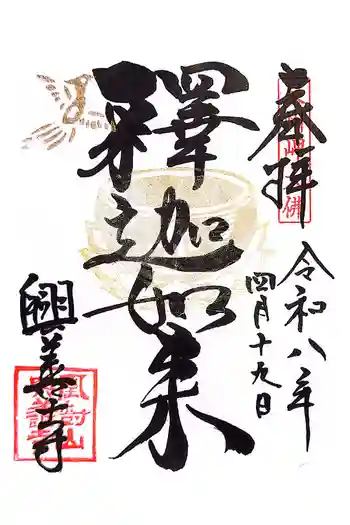 奉拝
令和八年
四月十九日
釋迦如来
興善寺